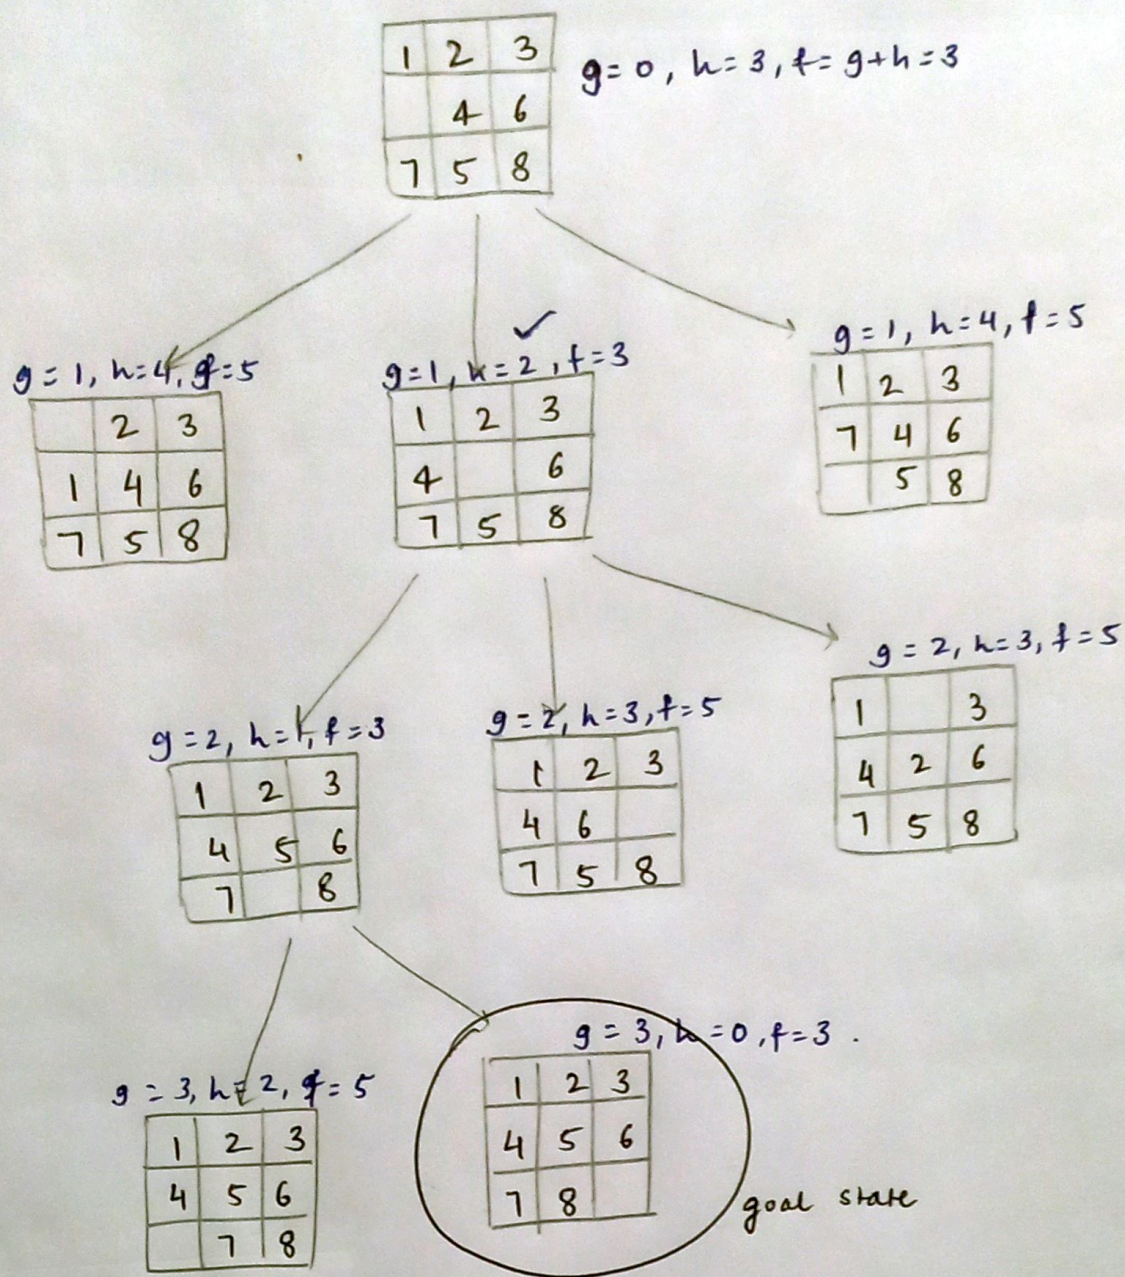 1 2 3
4 6
7 5 8
g=0, h=3, f=g+h=3
g=1, h=4, f=5
2 3
1 4 6
7 5 8
g=1, h=2, f=3
1 2 3
4 6
7 5 8
g=1, h=4, f=5
1 2 3
7 4 6
5 8
g=2, h=1, f=3
1 2 3
4 5 6
7 8
g=2, h=3, f=5
1 2 3
4 6
7 5 8
g=2, h=3, f=5
1 3
4 2 6
7 5 8
g=3, h=2, f=5
1 2 3
4 5 6
7 8
g=3, h=0, f=3.
1 2 3
4 5 6
7 8
goal state